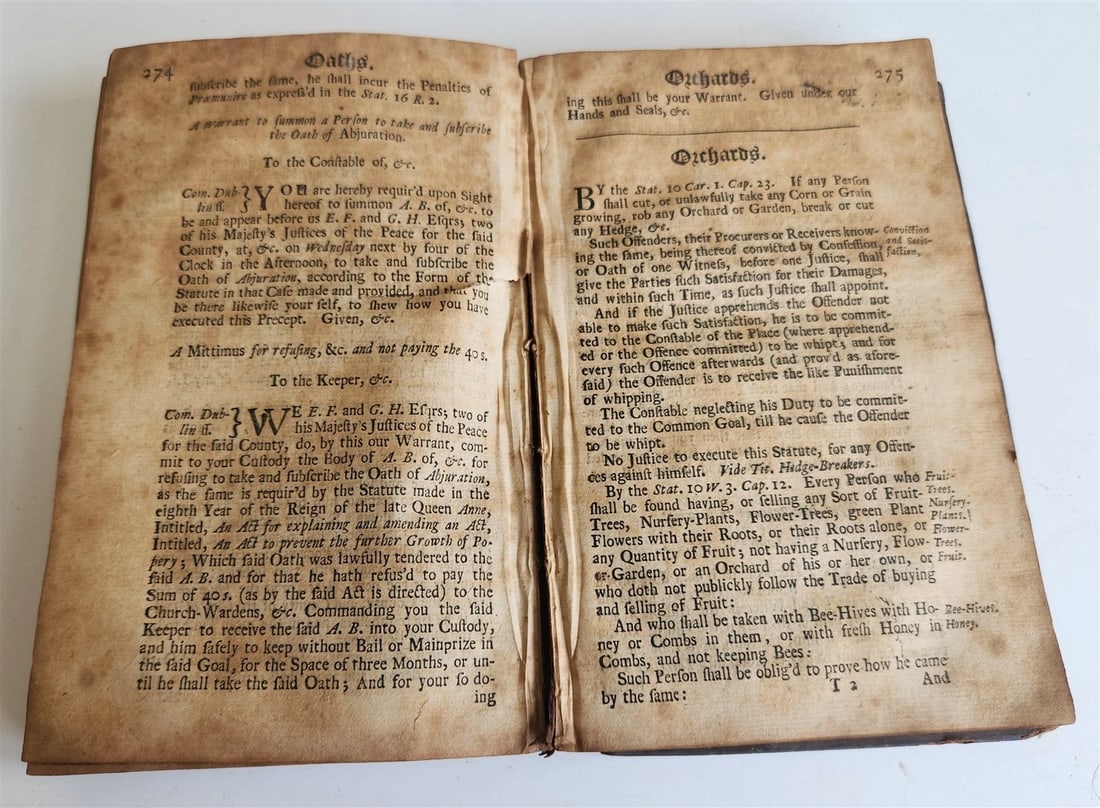 274
Oaths.
ſubſcribe the ſame, he ſhall incur the Penalties of
Præmunire as expreſs'd in the Stat. 16 R. 2.
A Warrant to ſummon a Perſon to take and ſubſcribe
the Oath of Abjuration.
To the Conſtable of, &c.
Com. Dub-
lin ſſ.
YOU are hereby requir'd upon Sight
hereof to ſummon A. B. of, &c. to
be and appear before us E. F. and G. H. Eſqrs; two
of his Majeſty's Juſtices of the Peace for the ſaid
County, at, &c. on Wedneſday next by four of the
Clock in the Afternoon, to take and ſubſcribe the
Oath of Abjuration, according to the Form of the
Statute in that Caſe made and provided, and that you
be there likewiſe your ſelf, to ſhew how you have
executed this Precept. Given, &c.
A Mittimus for refuſing, &c. and not paying the 40 s.
To the Keeper, &c.
Com. Dub-
lin ſſ.
WE E. F. and G. H. Eſqrs; two of
his Majeſty's Juſtices of the Peace
for the ſaid County, do, by this our Warrant, com-
mit to your Cuſtody the Body of A. B. of, &c. for
refuſing to take and ſubſcribe the Oath of Abjuration,
as the ſame is requir'd by the Statute made in the
eighth Year of the Reign of the late Queen Anne,
Intitled, An Act for explaining and amending an Act,
Intitled, An Act to prevent the further Growth of Po-
pery; Which ſaid Oath was lawfully tendered to the
ſaid A. B. and for that he hath refus'd to pay the
Sum of 40 s. (as by the ſaid Act is directed) to the
Church-Wardens, &c. Commanding you the ſaid
Keeper to receive the ſaid A. B. into your Cuſtody,
and him ſafely to keep without Bail or Mainprize in
the ſaid Goal, for the Space of three Months, or un-
til he ſhall take the ſaid Oath; And for your ſo do-
ing
Orchards.
275
ing this ſhall be your Warrant. Given under our
Hands and Seals, &c.
Orchards.
BY the Stat. 10 Car. 1. Cap. 23. If any Perſon
ſhall cut, or unlawfully take any Corn or Grain
growing, rob any Orchard or Garden, break or cut
any Hedge, &c.
Such Offenders, their Procurers or Receivers know-
Conviction
ing the ſame, being thereof convicted by Confeſſion,
and Satis-
or Oath of one Witneſs, before one Juſtice, ſhall
faction,
give the Parties ſuch Satisfaction for their Damages,
and within ſuch Time, as ſuch Juſtice ſhall appoint.
And if the Juſtice apprehends the Offender not
able to make ſuch Satisfaction, he is to be commit-
ted to the Conſtable of the Place (where apprehend-
ed or the Offence committed) to be whipt; and for
every ſuch Offence afterwards (and prov'd as afore-
ſaid) the Offender is to receive the like Puniſhment
of whipping.
The Conſtable neglecting his Duty to be commit-
ted to the Common Goal, till he cauſe the Offender
to be whipt.
No Juſtice to execute this Statute, for any Offen-
ces againſt himſelf. Vide Tit. Hedge-Breakers.
By the Stat. 10 W. 3. Cap. 12. Every Perſon who
Fruit-
ſhall be found having, or ſelling any Sort of Fruit-
Trees.
Trees, Nurſery-Plants, Flower-Trees, green Plant
Nurſery-
Flowers with their Roots, or their Roots alone, or
Plants.
any Quantity of Fruit; not having a Nurſery, Flow-
Flower-
Trees.
er-Garden, or an Orchard of his or her own, or
Fruit.
who doth not publickly follow the Trade of buying
and ſelling of Fruit:
And who ſhall be taken with Bee-Hives with Ho-
Bee-Hives.
ney or Combs in them, or with freſh Honey in
Honey.
Combs, and not keeping Bees:
Such Perſon ſhall be oblig'd to prove how he came
by the ſame:
T 2
And